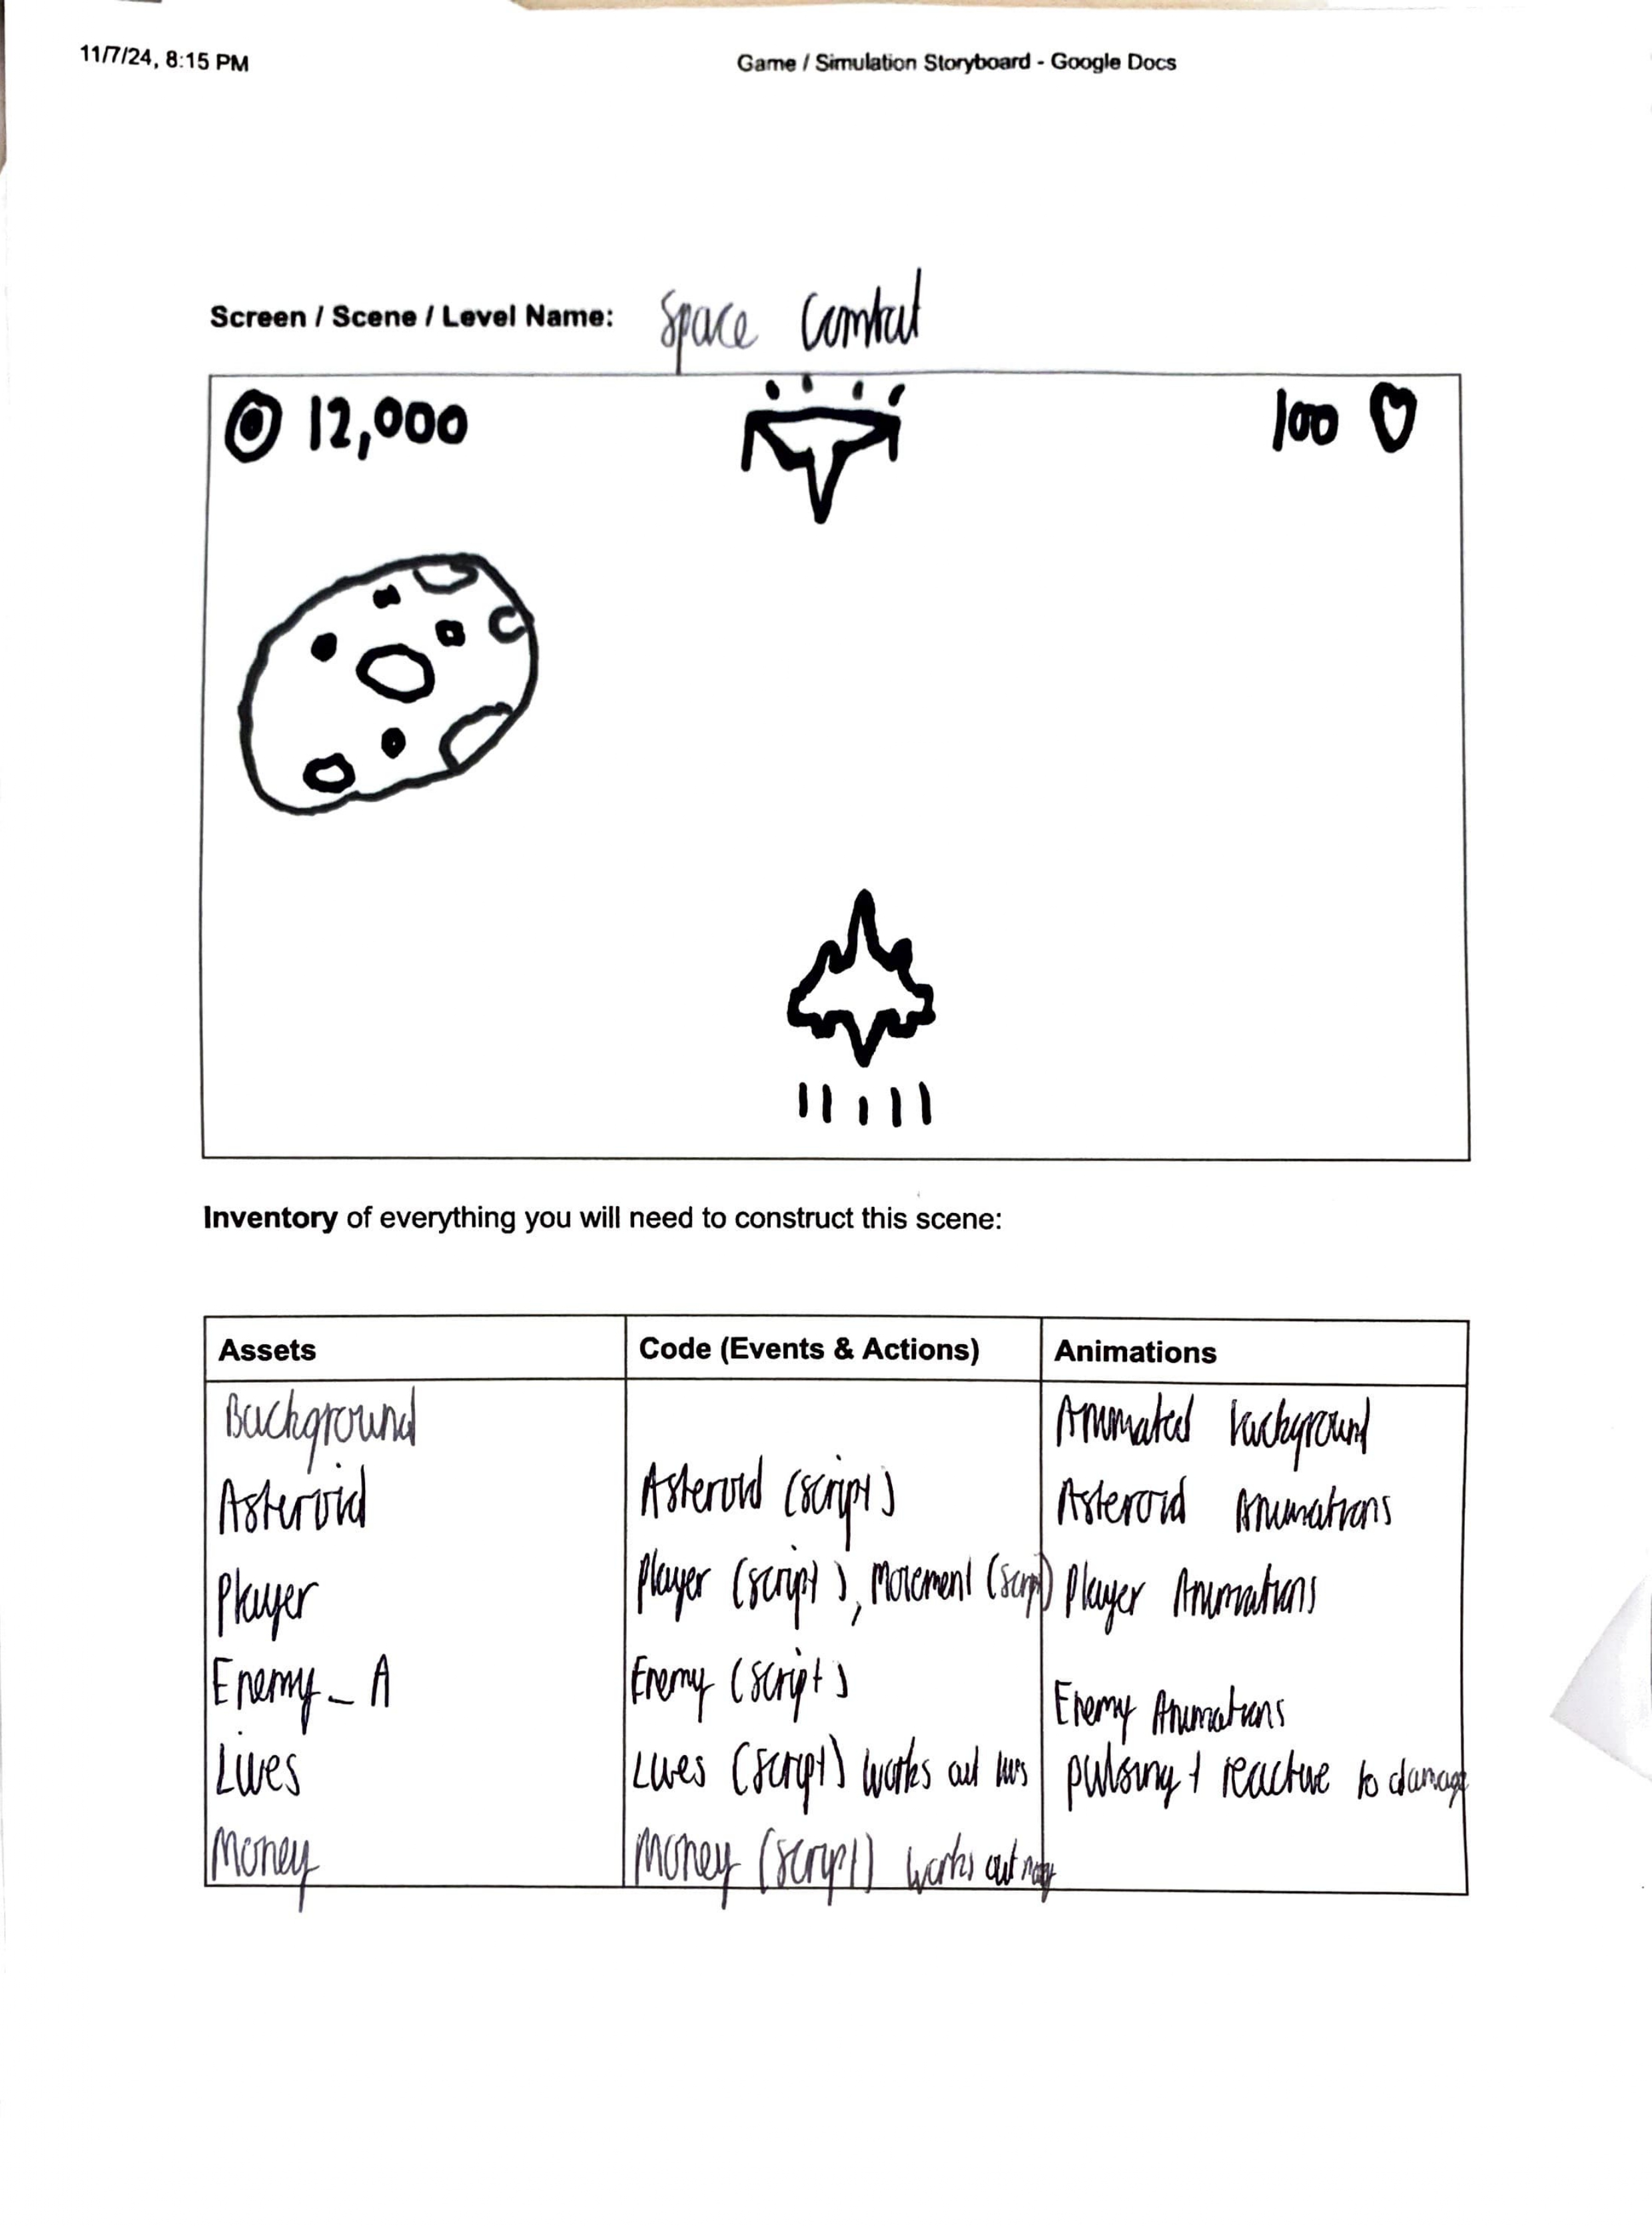 11/7/24, 8:15 PM Game / Simulation Storyboard - Google Docs
Screen / Scene / Level Name: Space Combat
12,000 100
Inventory of everything you will need to construct this scene:
Assets Code (Events & Actions) Animations
Background Animated background
Asteroid Asteroid (script) Asteroid Animations
Player Player (script), Movement (script) Player Animations
Enemy_A Enemy (script) Enemy Animations
Lives Lives (script) works out lives pulsing + reactive to damage
Money Money (script) works out money